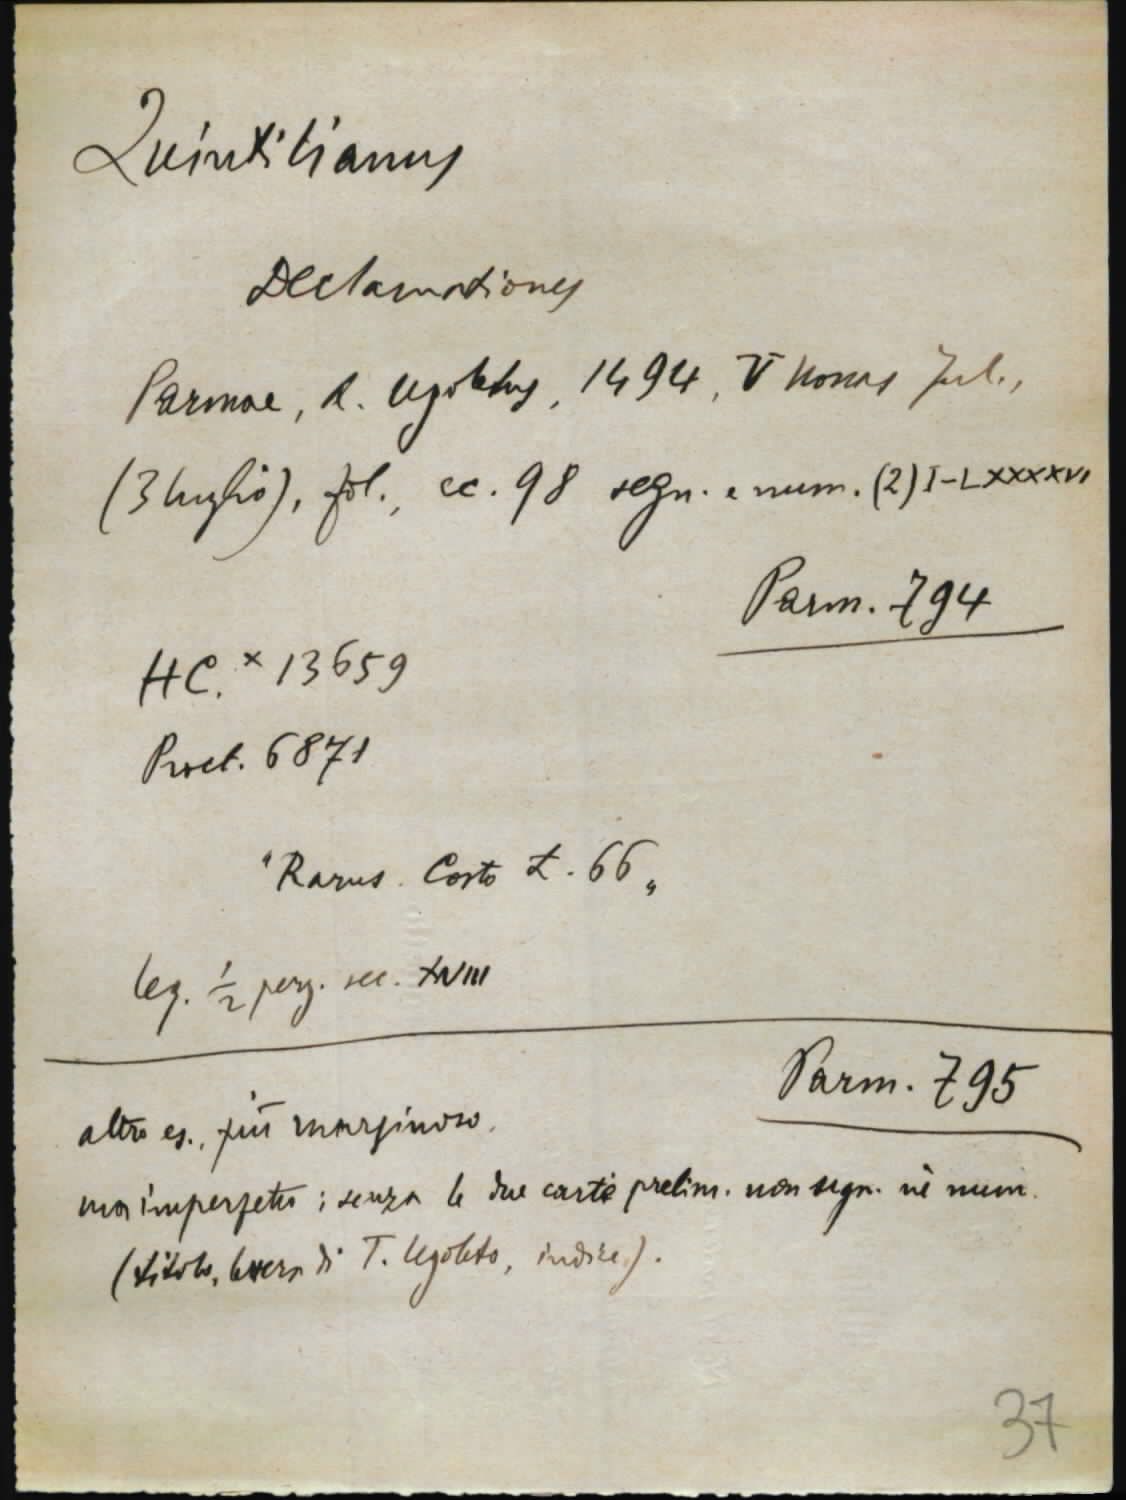 Quintilianus
Declamationes
Parmae, A. Ugoletus, 1494, V Nonas Jul.,
(3 luglio), fol., cc. 98 segn. e num. (2) I-LXXXXVI
Parm. 794
HC. x 13659
Proct. 6871
"Rarus. Costo L. 66"
leg. ½ perg. sec. XVIII
Parm. 795
altro es., più marginoso.
ma imperfetto; senza le due carte prelim. non segn. nè num.
(titolo, lettera di T. Ugoleto, indice).
37